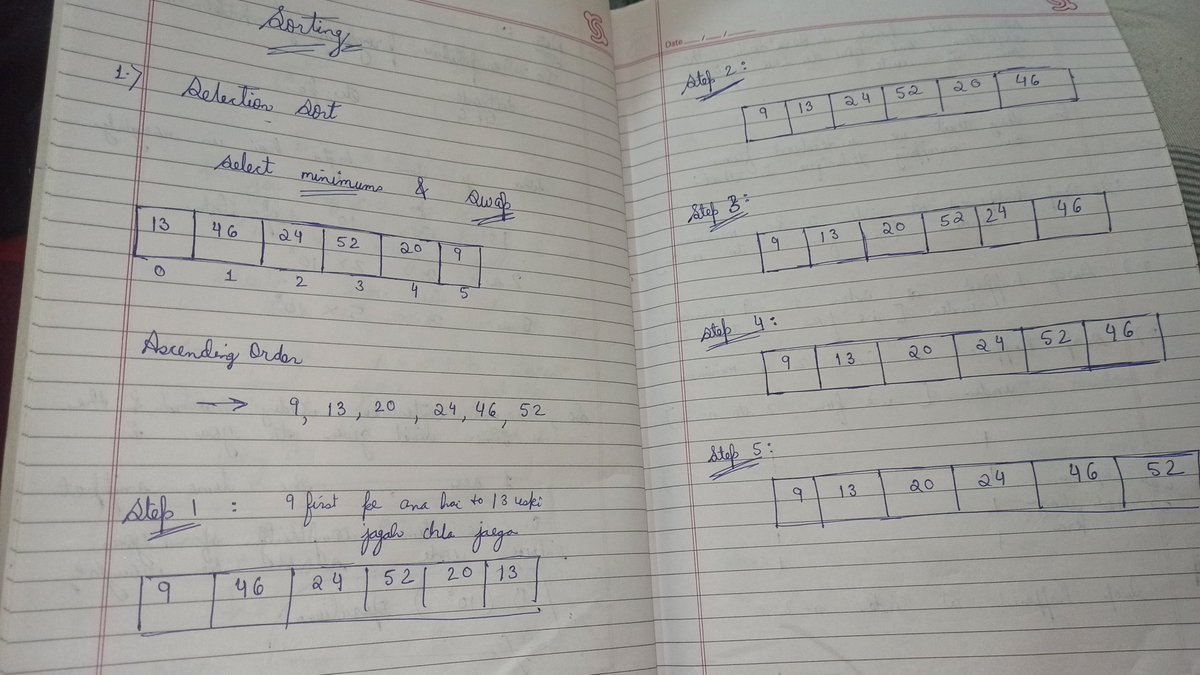 Sorting
1.) Selection Sort
Select minimums & Swap
13 46 24 52 20 9
0 1 2 3 4 5
Ascending Order
→ 9, 13, 20, 24, 46, 52
Step 1 : 9 first pe ana hai to 13 uski
jagah chla jaega
9 46 24 52 20 13
Date __/__/__
Step 2:
9 13 24 52 20 46
Step 3:
9 13 20 52 24 46
Step 4:
9 13 20 24 52 46
Step 5:
9 13 20 24 46 52